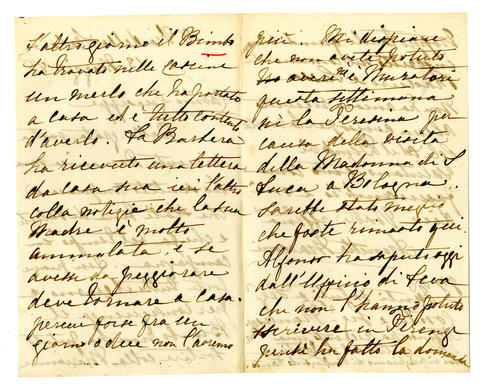 L'altro giorno il Bimbo
ha trovato nelle cascine
un merlo che ha portato
a casa ed è tutto contento
d'averlo. La Barbera
ha ricevuto una lettera
da casa sua ieri l'altro
colla notizia che la sua
Madre è molto
ammalata, e se
avesse da peggiorare
deve tornare a casa.
perciò forse fra un
giorno o due non l'avremo
più. Mi dispiace
che non avete potuto
avere Muratori
questa settimana
nè la Teresina per
causa della visita
della Madonna di S
Luca a Bologna.
Sarebbe stato meglio
che foste rimasto qui.
Alfonso ha saputo oggi
dall'Uffizio di Leva
che non l'hanno potuto
iscrivere in Firenze
perchè ha fatto la domanda